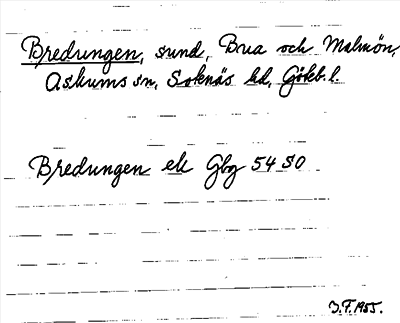 Bredungen, sund, Bua och Malmön,
Askums sn, Soknäs hd, Gökb. l.
Bredungen ek Gbg 54 SO
J.F. 1955.